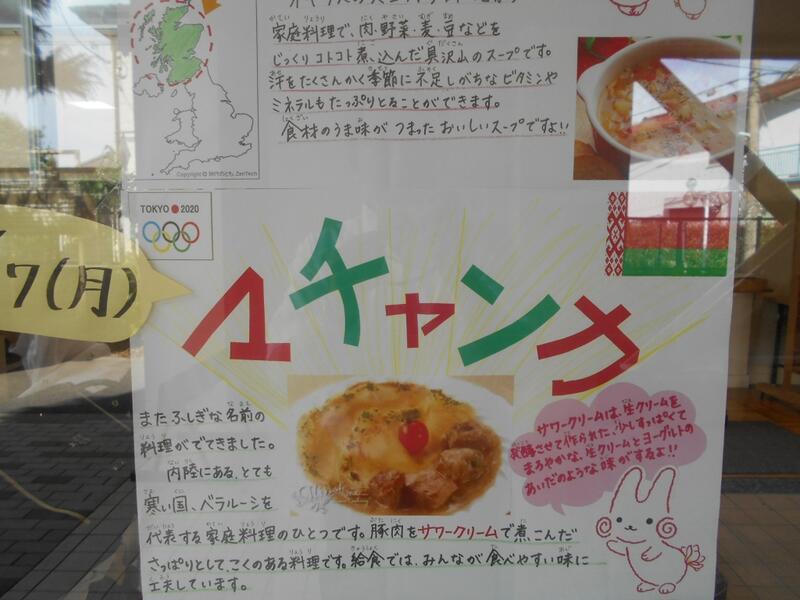 家庭料理で、肉・野菜・麦・豆などを
じっくりコトコト煮込んだ具沢山のスープです。
汗をたくさんかく季節に不足しがちなビタミンや
ミネラルもたっぷりとることができます。
食材のうま味がつまったおいしいスープですよ!!
TOKYO 2020
7(月)
マチャンカ
またふしぎな名前の
料理がでてきました。
内陸にある、とても
寒い国、ベラルーシを
代表する家庭料理のひとつです。豚肉をサワークリームで煮こんだ
さっぱりとして、こくのある料理です。給食では、みんなが食べやすい味に
工夫しています。
サワークリームは、生クリームを
発酵させて作られた、少しすっぱくて
まろやかな、生クリームとヨーグルトの
あいだのような味がするよ!!